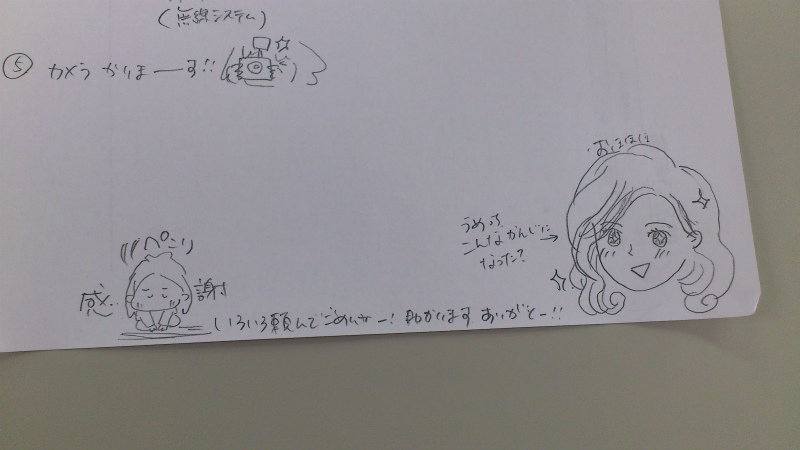 (無線システム)
⑤ カメラ かりまーす!!
おほほほ
うめって
こんなかんじに→
なった?
ペこり
感 謝
いろいろ頼んでごめんサー! 助かります ありがとー!!